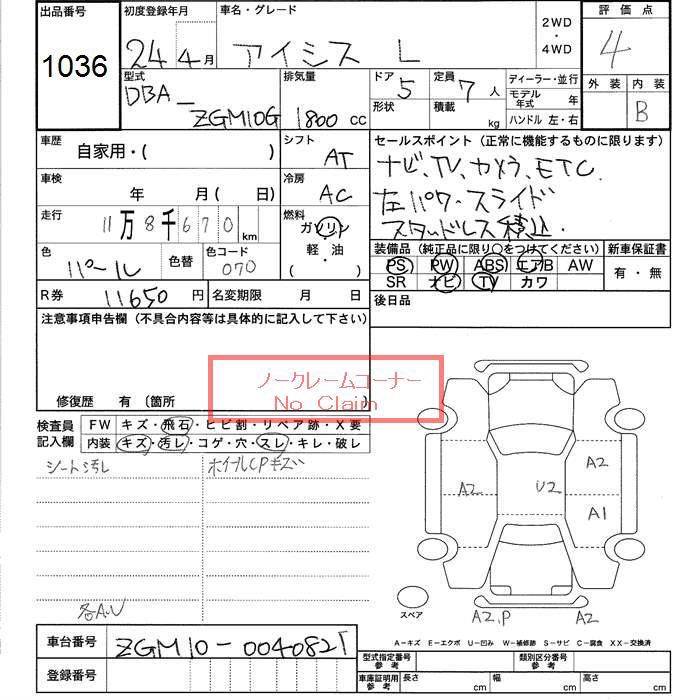 出品番号 初度登録年月 車名・グレード 2WD・4WD 評価点
1036 24年4月 アイシス L 4
型式 排気量 ドア 定員 ディーラー・並行 外装 内装
DBA_ 5 7人 モデル年式 年 B
ZGM10G 1800cc 形状 積載 kg ハンドル 左・右
車歴 シフト セールスポイント (正常に機能するものに限ります)
自家用・( ) AT ナビ、TV、カメラ、ETC.
車検 冷房 左パワースライド
年 月( 日) AC スタッドレス積込.
走行 燃料
11万8千670km ガソリン
色 色替 色コード 軽・油 装備品 (純正品に限り○をつけてください) 新車保証書
パール 070 ( ) PS PW ABS エアB AW 有・無
R券 11650円 名変期限 月 日 SR ナビ TV カワ
後日品
注意事項申告欄 (不具合内容等は具体的に記入して下さい)
ノークレームコーナー
No Claim
修復歴 有 〔箇所
検査員記入欄 FW キズ・飛石・ヒビ割・リペア跡・X要
内装 キズ・汚レ・コゲ・穴・スレ・キレ・破レ
シート汚レ ホイールCPキズ
A2
A2 U2
A1
各A.U
スペア A2,P A2
A-キズ E-エクボ U-凹み W-補修跡 S-サビ C-腐食 XX-交換済
車台番号 ZGM10-0040821
型式指定番号 参考 類別区分番号 参考
登録番号 車庫証明用 参考 長さ cm 幅 cm 高さ cm